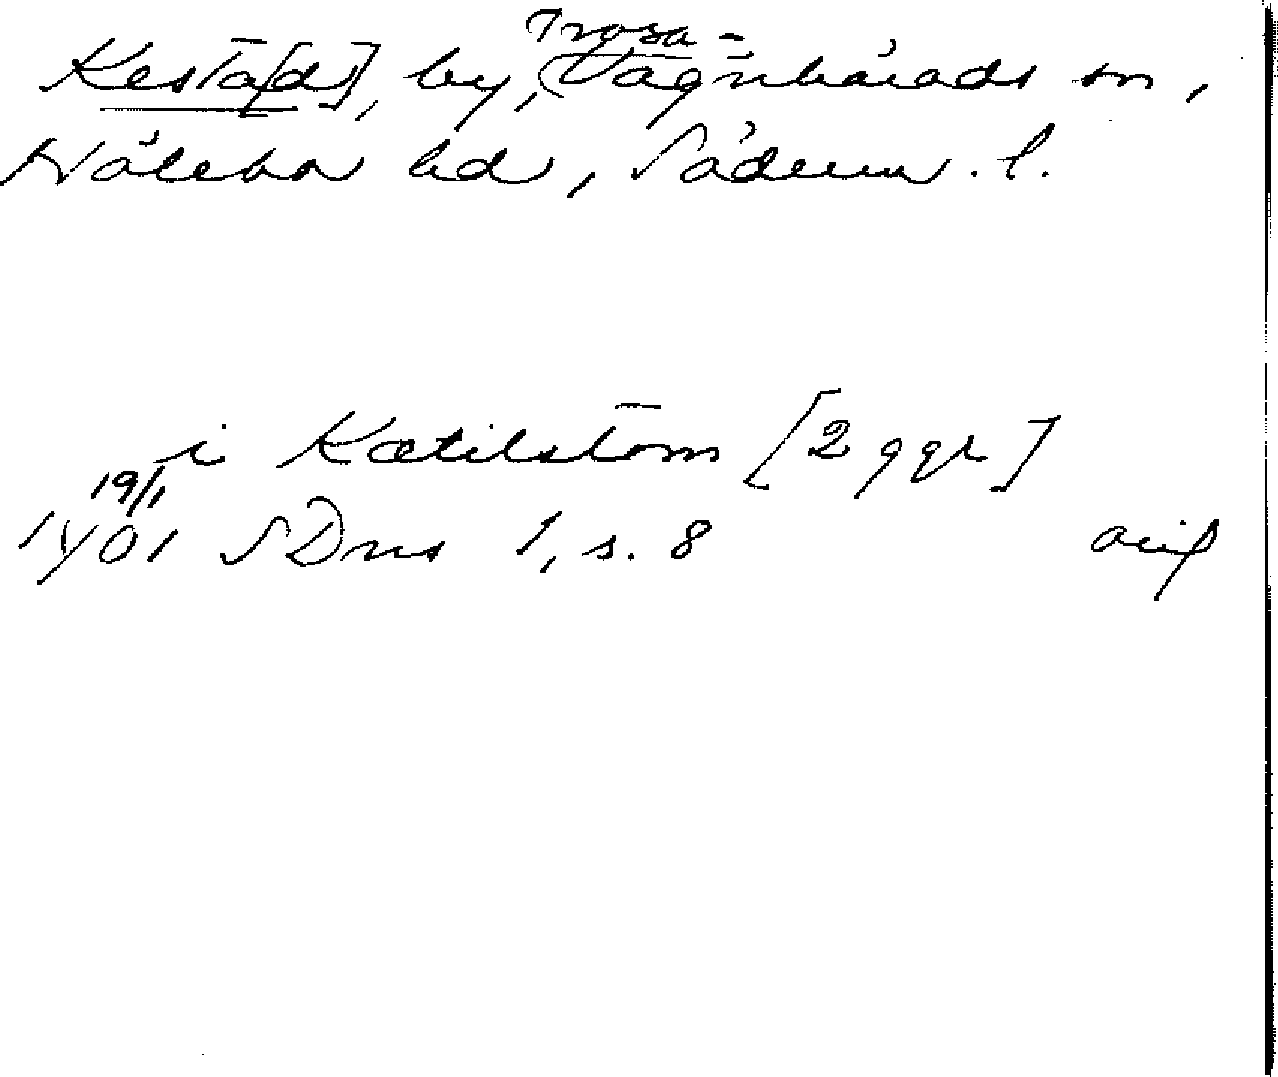 Kesta[d], by, Trosa-
Vagnhärads sn,
Hölebo hd, Söderm. l.
i Kætilstom [2 ggr]
19/1
1401 SDns 1, s. 8 avif